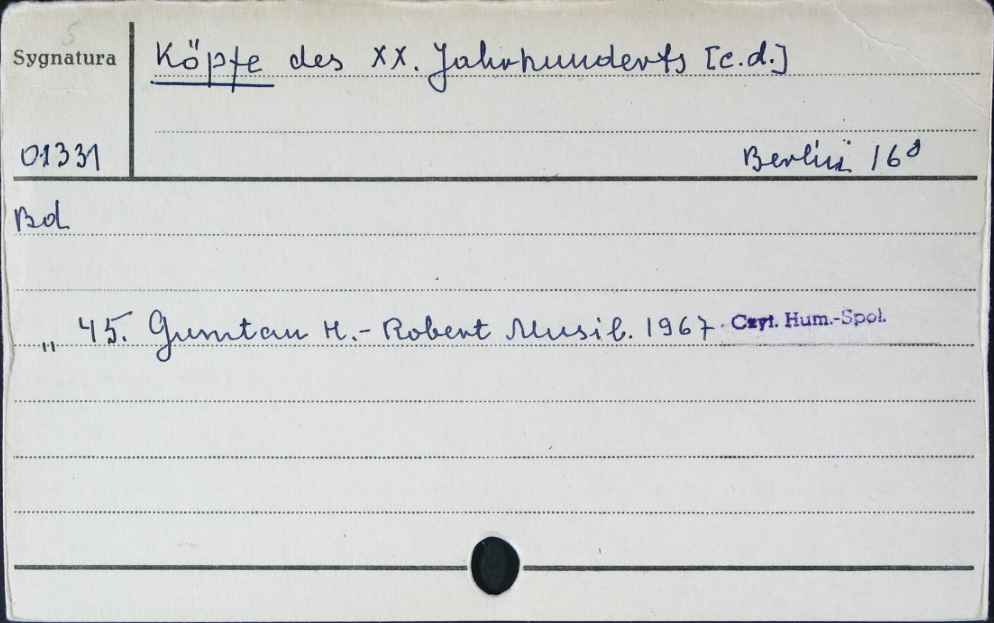 5
Sygnatura
Köpfe des XX. Jahrhunderts [c.d.]
01331
Berlin 16°
Bd
„ 45. Gumtau H.- Robert Musil. 1967. Czyt. Hum.-Społ.